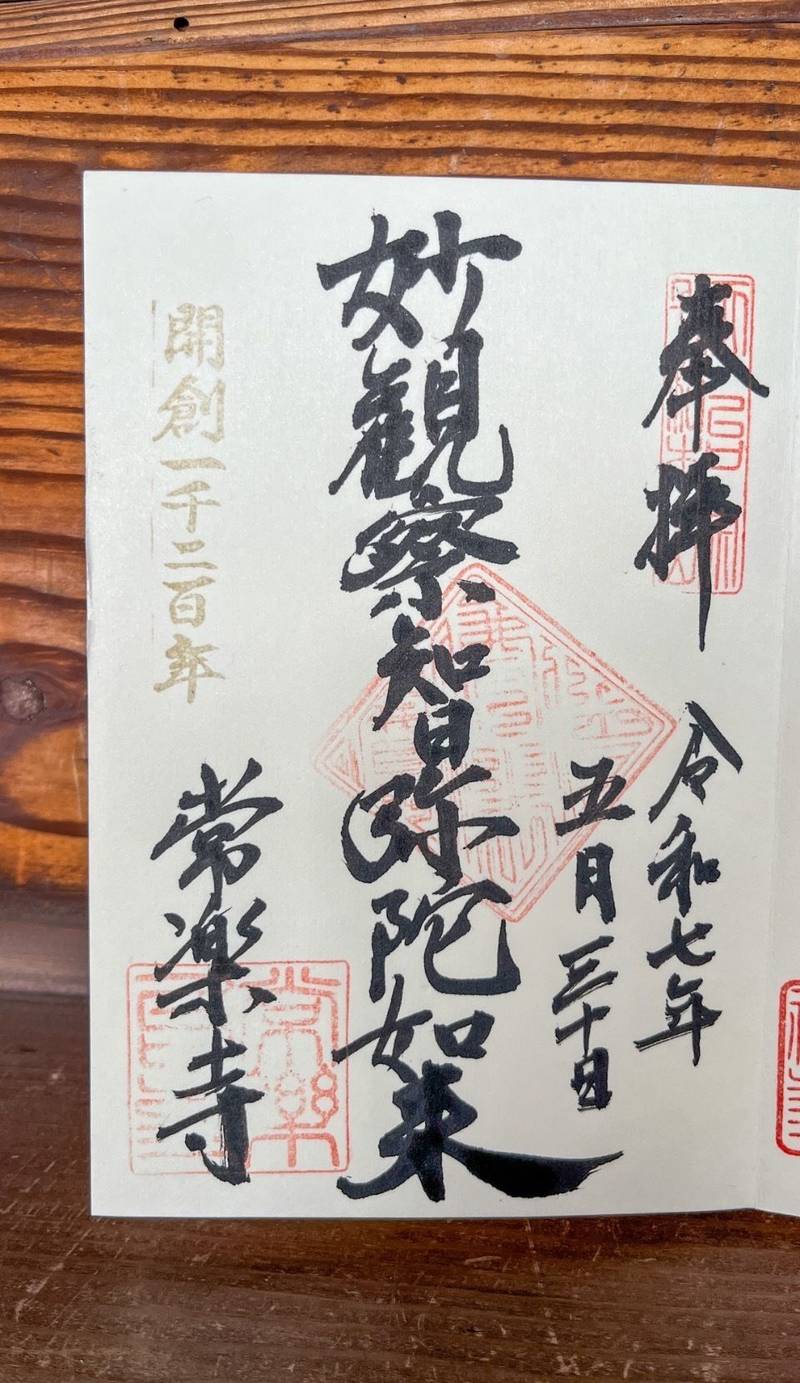 奉拝
令和七年
五月三十日
妙觀察智弥陀如来
開創一千二百年
常楽寺